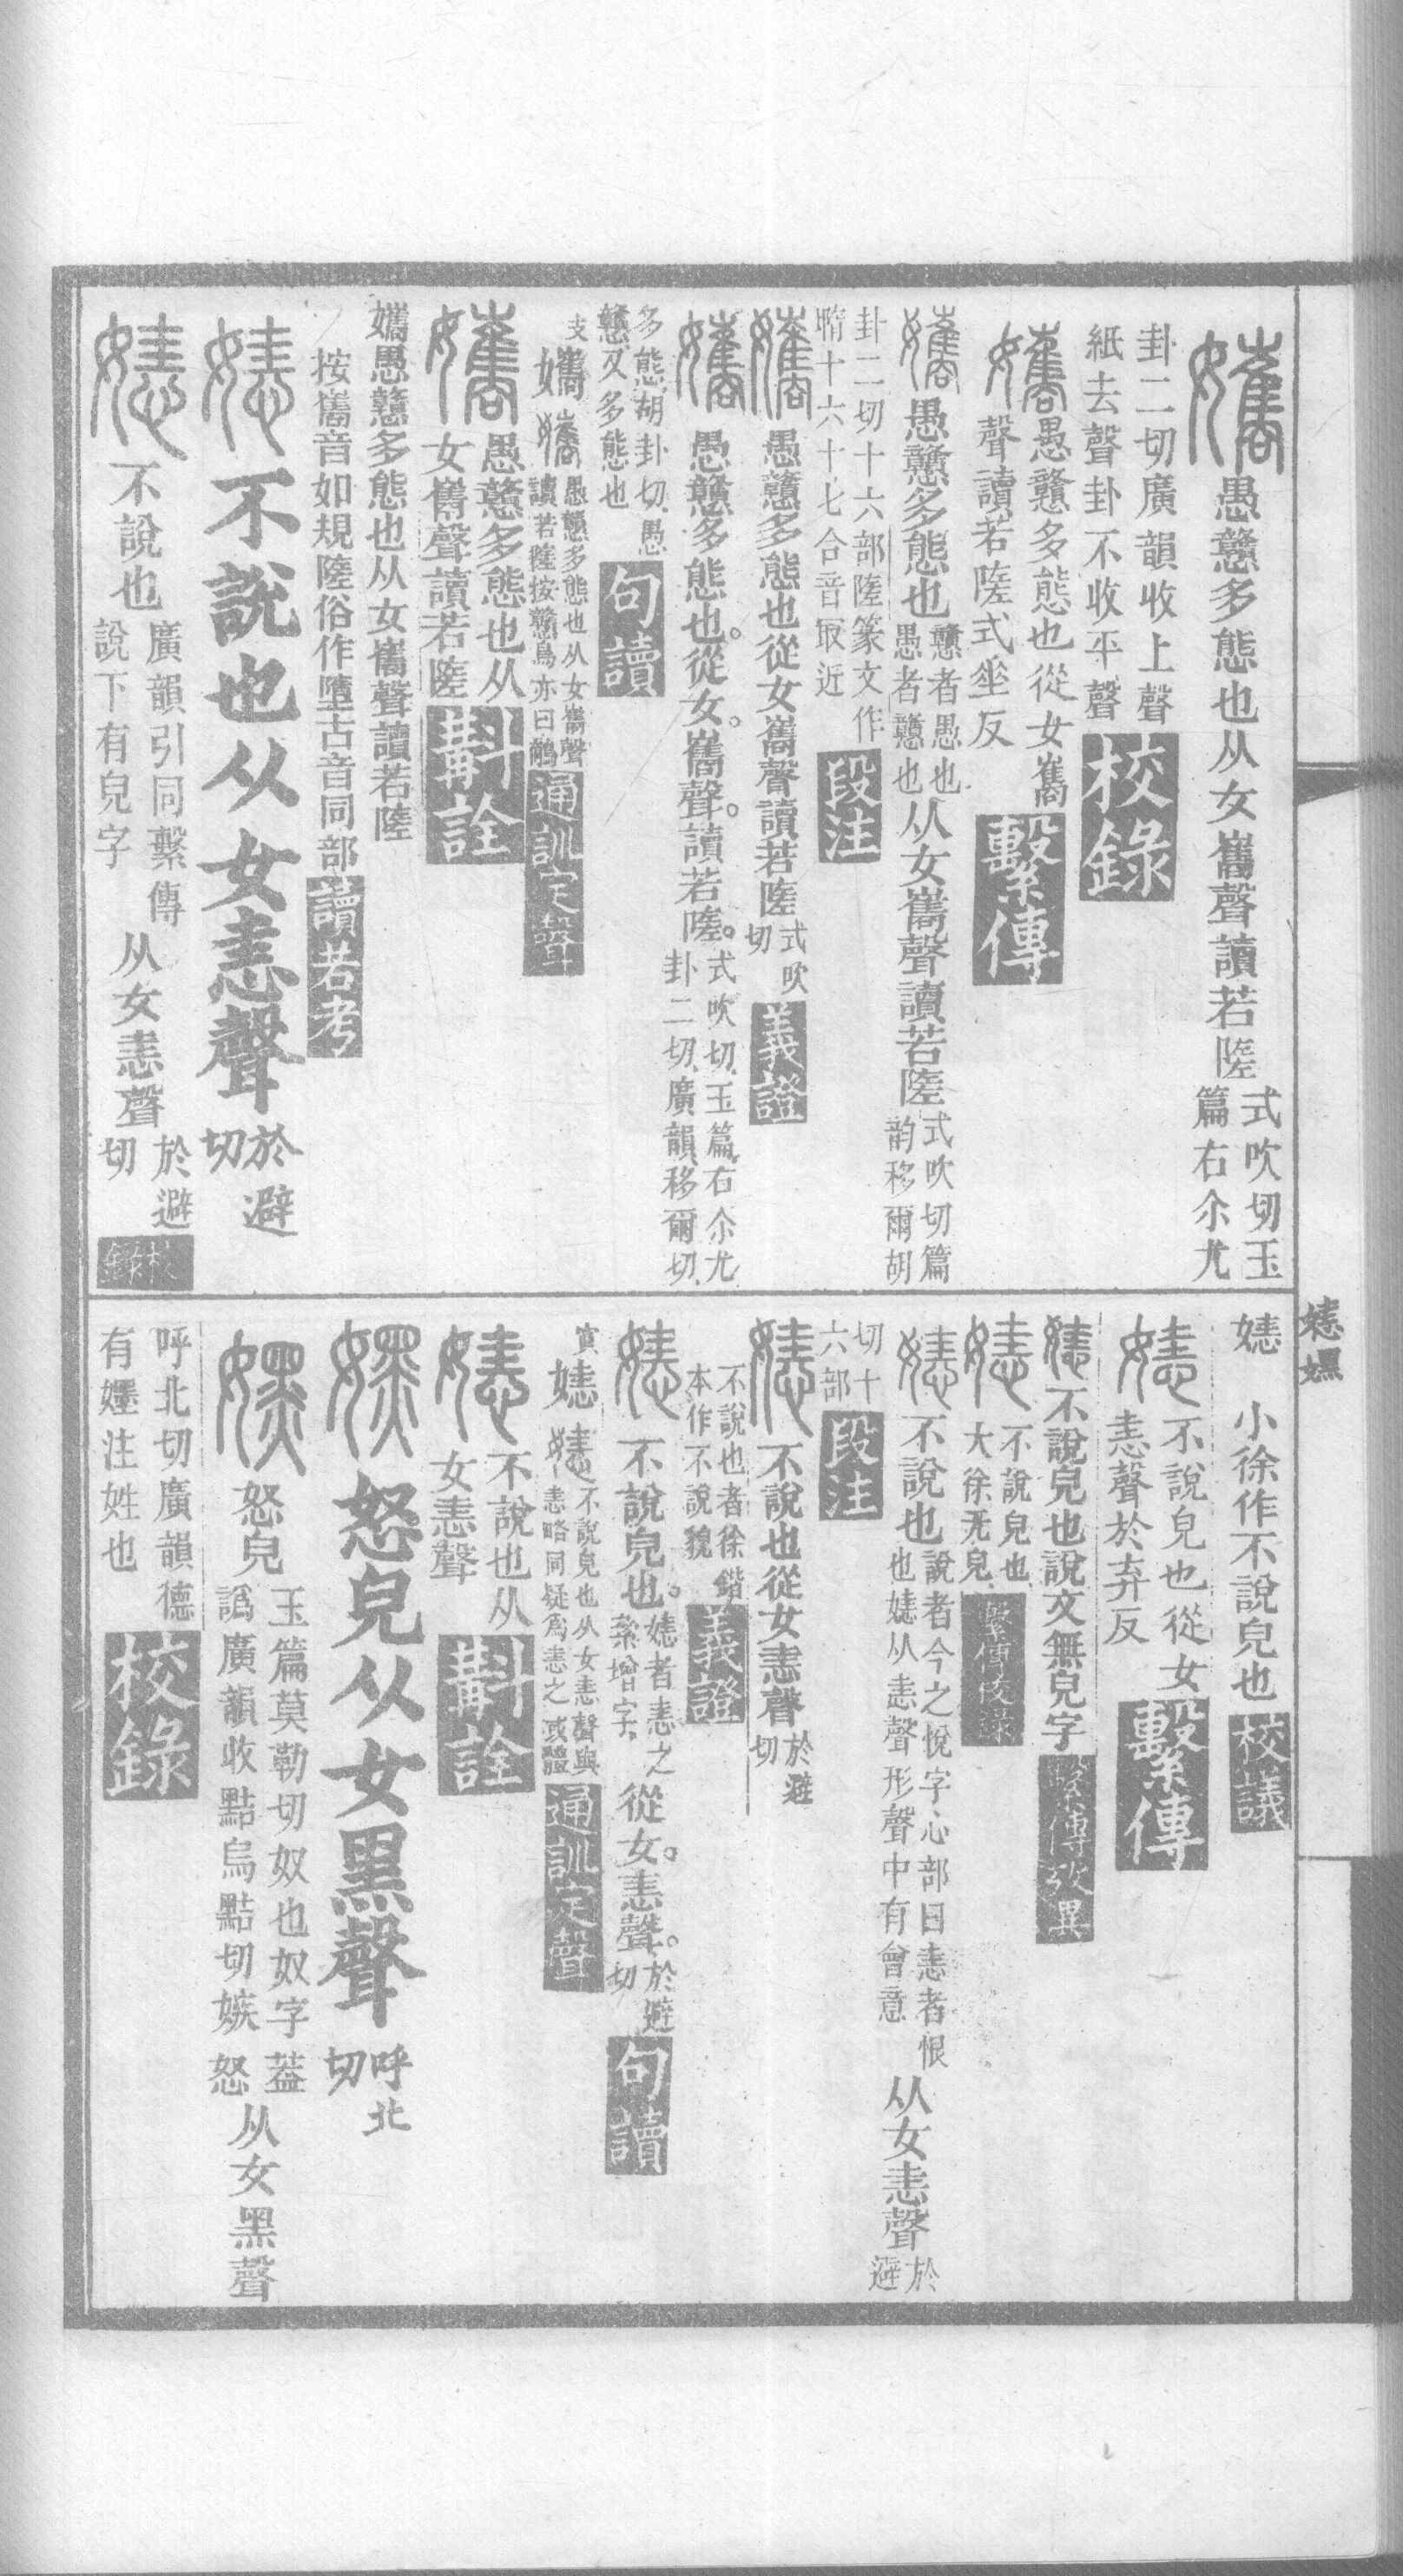 愚戇多態也从女巂聲讀若隓式吹切玉篇右尒尤
卦二切廣韻收上聲紙去聲卦不收平聲校錄
愚戇多態也從女巂聲讀若隓式坐反繫傳
愚戇多態也戇者愚也愚者戇也从女巂聲讀若隓式吹切篇韵移爾胡
卦二切十六部隓篆文作墮十六十七合音冣近段注
愚戇多態也從女巂聲讀若隓式吹切義證
愚戇多態也。從女。巂聲。讀若隓。式吹切、玉篇、右尒尤卦二切、廣韻、移爾切、
多態胡卦切、愚戇又多態也句讀
支㜯愚戇多態也从女巂聲讀若隓按戇鳥亦曰鸏通訓定聲
愚戇多態也从女巂聲讀若隓斠詮
㜯愚戇多態也从女巂聲讀若隓
按巂音如規隓俗作墮古音同部讀若考
不說也从女恚聲於避切
不說也廣韻引同繫傳說下有皃字从女恚聲於避切校錄
婎嫼
娡小徐作不說皃也校議
不說皃也從女恚聲於弃反繫傳
不說皃也說文無皃字繫傳攷異
不說皃也大徐无皃繫傳校錄
不說也說者今之悅字心部曰恚者恨也娡从恚聲形聲中有會意从女恚聲於避
切十六部段注
不說也從女恚聲於避切
不說也者徐鍇本作不說貌義證
不說皃也。娡者恚之絫增字、從女。恚聲。於避切句讀
不說皃也从女恚聲與恚略同疑爲恚之或體通訓定聲
不說也从女恚聲斠詮
怒皃从女黑聲呼北切
怒皃玉篇莫勒切奴也奴字葢譌廣韻收黠烏黠切嫉怒从女黑聲
呼北切廣韻德有嫼注姓也校錄